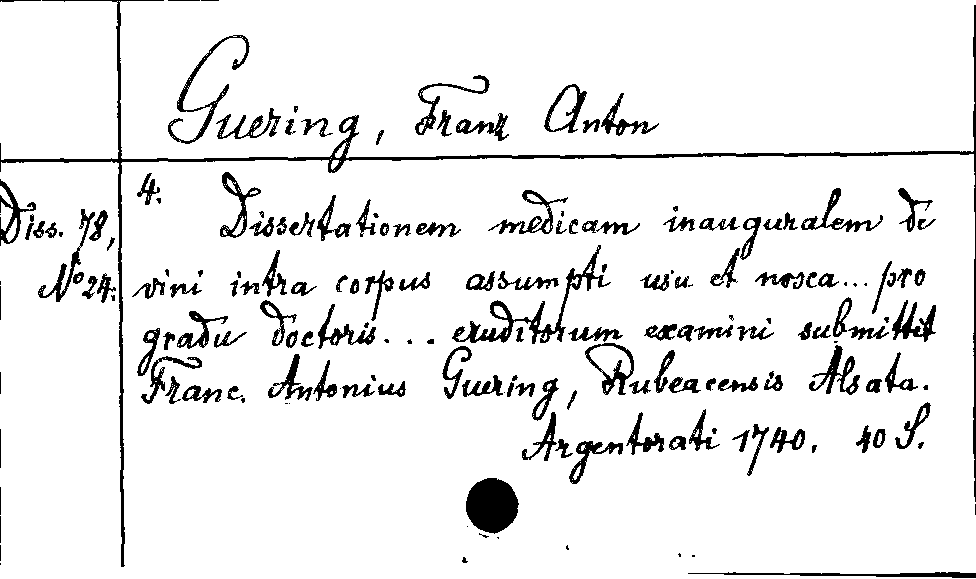 Guering, Franz Anton
Diss. 78,
No 24.
4. Dissertationem medicam inauguralem de
vini intra corpus assumpti usu et nosca... pro
gradu doctoris... eruditorum examini submittit
Franc. Antonius Guering, Rubeacensis Alsata.
Argentorati 1740. 40 S.